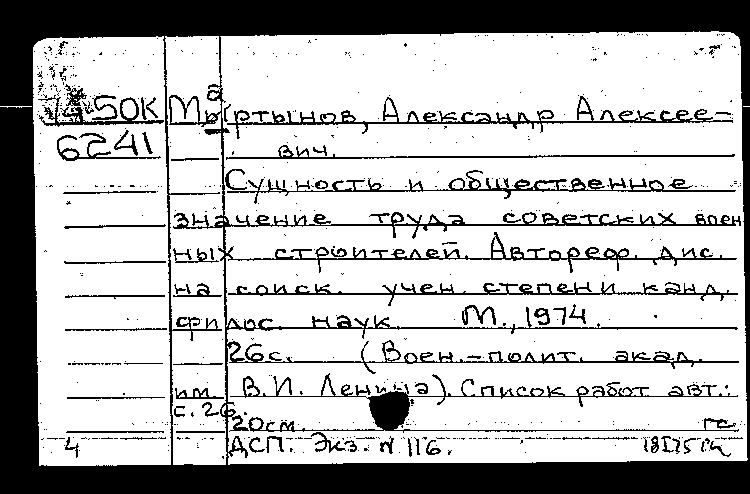 74 50К Мартынов, Александр Алексее-
6241 вич.
Сущность и общественное
значение труда советских воен
ных строителей. Автореф. дис.
на соиск. учен. степени канд.
филос. наук. М., 1974.
26с. (Воен.-полит. акад.
им. В.И. Ленина). Список работ авт.:
с. 26.
20см. гс
4 ДСП. Экз. № 116.